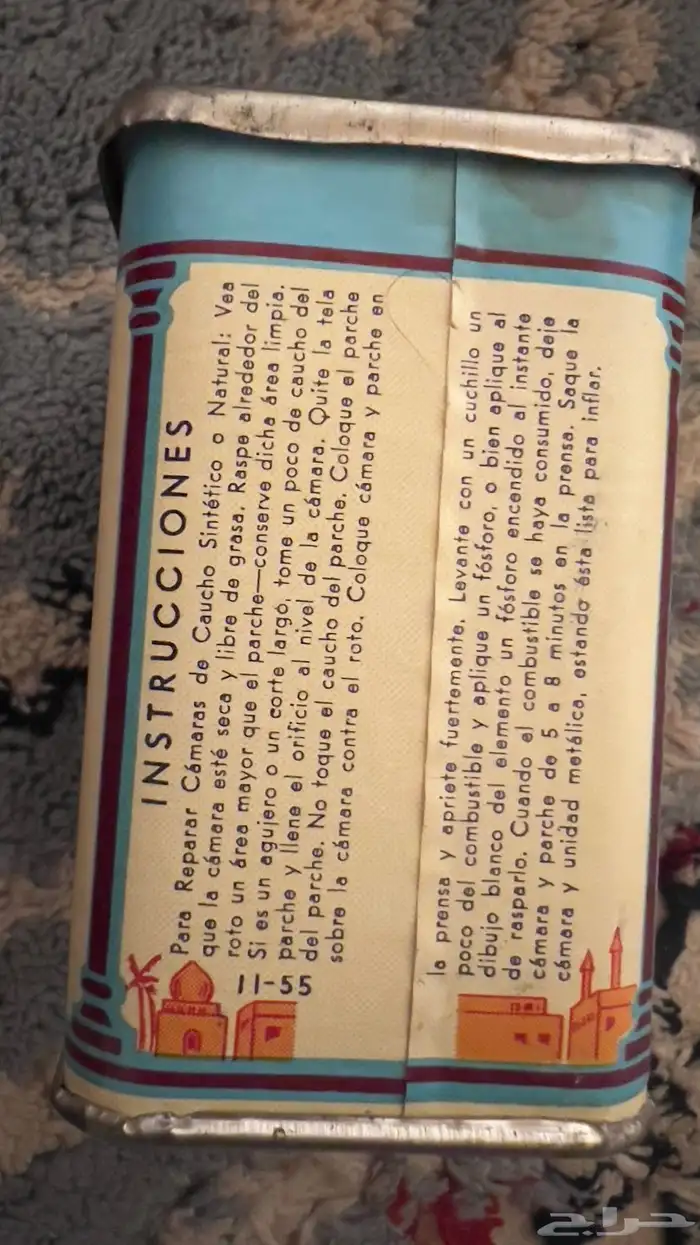 INSTRUCCIONES
Para Reparar Cámaras de Caucho Sintético o Natural: Vea
que la cámara esté seca y libre de grasa. Raspe alrededor del
roto un área mayor que el parche—conserve dicha área limpia.
Si es un agujero o un corte largo, tome un poco de caucho del
parche y llene el orificio al nivel de la cámara. Quite la tela
del parche. No toque el caucho del parche. Coloque el parche
sobre la cámara contra el roto. Coloque cámara y parche en
11-55
la prensa y apriete fuertemente. Levante con un cuchillo un
poco del combustible y aplique un fósforo, o bien aplique al
dibujo blanco del elemento un fósforo encendido al instante
de rasparlo. Cuando el combustible se haya consumido, deje
cámara y parche de 5 a 8 minutos en la prensa. Saque la
cámara y unidad metálica, estando ésta lista para inflar.
حراج